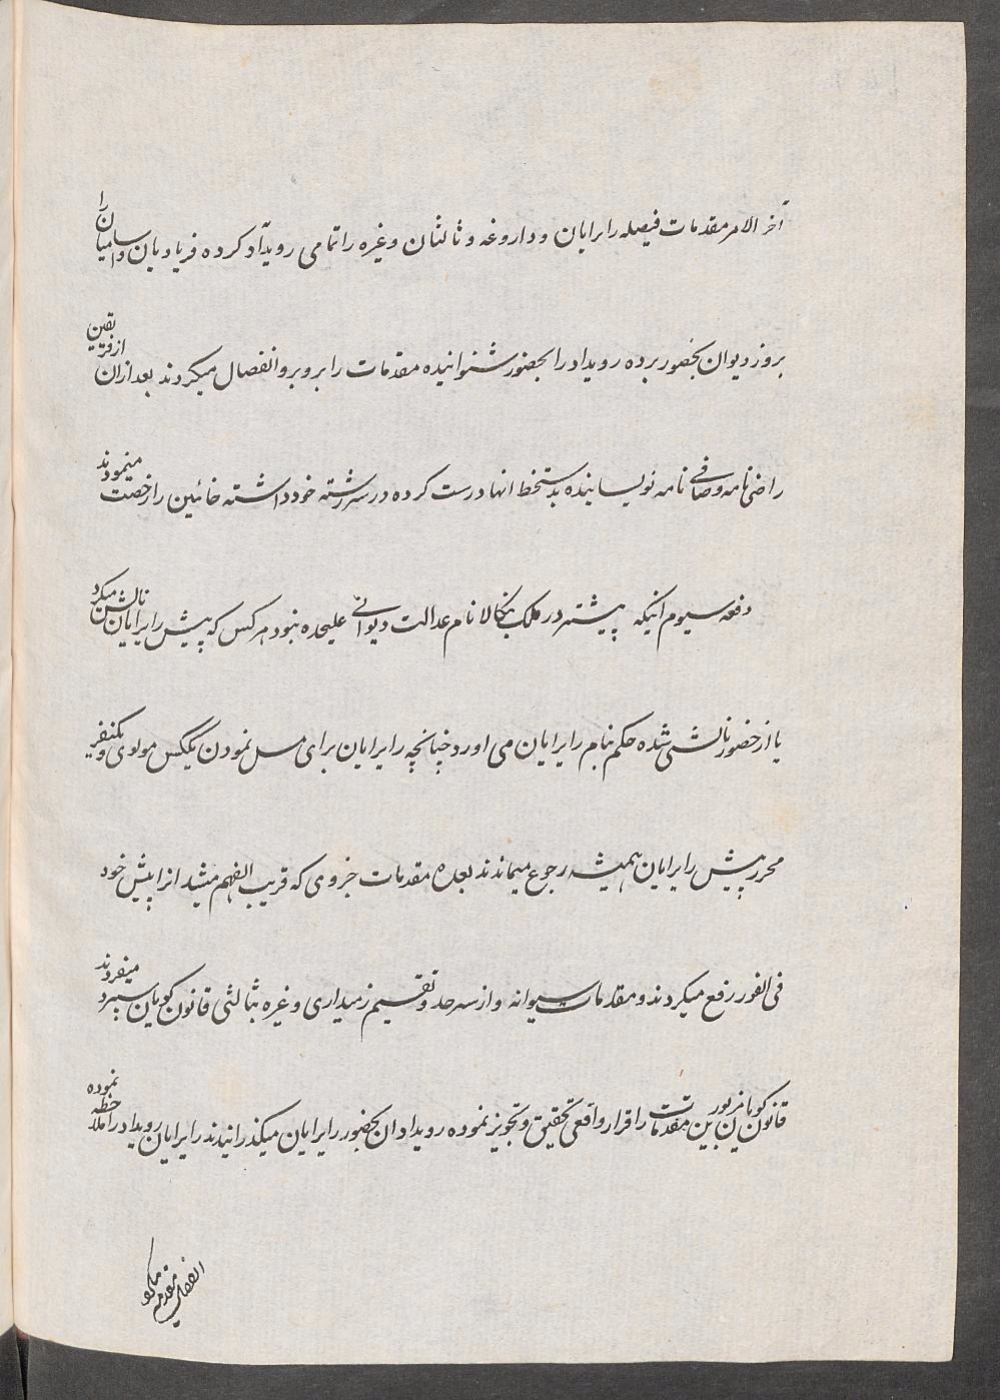 آخر الامر مقدمات فیصله رایرایان و داروغه و ثالثان وغیره را تمامی رویداد کرده فریادیان و اسامیان را
بروز دیوان بحضور برده رویداد را بحضور شنوانیده مقدمات را بروبرو انفصال میکردند بعد ازان از فریقین
راضی نامه و صافی نامه نویسانیده بدستخط انها درست کرده در سررشته خود داشته خائنین را رخصت مینمودند
دفعه سیوم انیکه پیشتر در ملک بنکالا نام عدالت دیوانی علیحده نبود هر کس که پیش رایرایان نالش میکرد
یا از حضور نالشی شده حکم بنام رایرایان می اورد چنانچه رایرایان برای مسل نمودن یککس مولوی و یکنفر
محرر پیش رایرایان همیشه رجوع میماندند بعده مقدمات جزوی که قریب الفهم میشد انرا پیش خود
فی الفور رفع میکردند و مقدمات سیوانه و از سرحد و تقسیم زمیداری وغیره بثالثی قانون کویان سپرد میفرمودند
قانون کویان مزبور بین مقدمات را قرار واقعی تحقیق و تجویز نموده رویداد ان بحضور رایرایان میکذرانیدند رایرایان رویداد را ملاحظه نموده
انفصال مقدمه